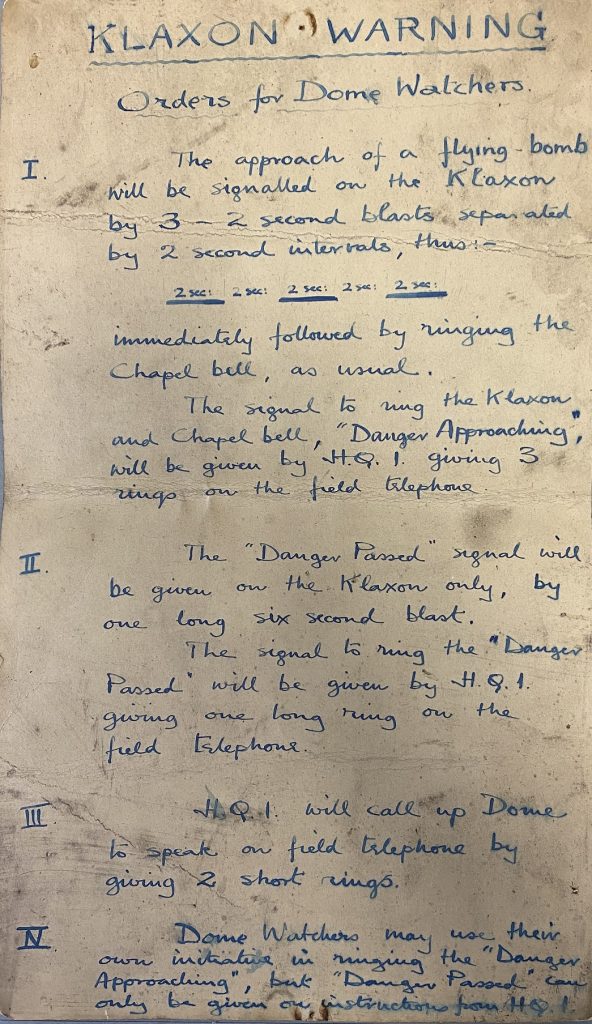 KLAXON WARNING
Orders for Dome Watchers.
I. The approach of a flying-bomb
will be signalled on the Klaxon
by 3 – 2 second blasts separated
by 2 second intervals, thus:-
2 sec: 2 sec: 2 sec: 2 sec: 2 sec:
immediately followed by ringing the
Chapel bell, as usual.
The signal to ring the Klaxon
and Chapel bell, "Danger Approaching",
will be given by H.Q.1. giving 3
rings on the field telephone.
II. The "Danger Passed" signal will
be given on the Klaxon only, by
one long six second blast.
The signal to ring the "Danger
Passed" will be given by H.Q.1.
giving one long ring on the
field telephone.
III H.Q.1. will call up Dome
to speak on field telephone by
giving 2 short rings.
IV. Dome Watchers may use their
own initiative in ringing the "Danger
Approaching", but "Danger Passed" can
only be given on instructions from H.Q.1.